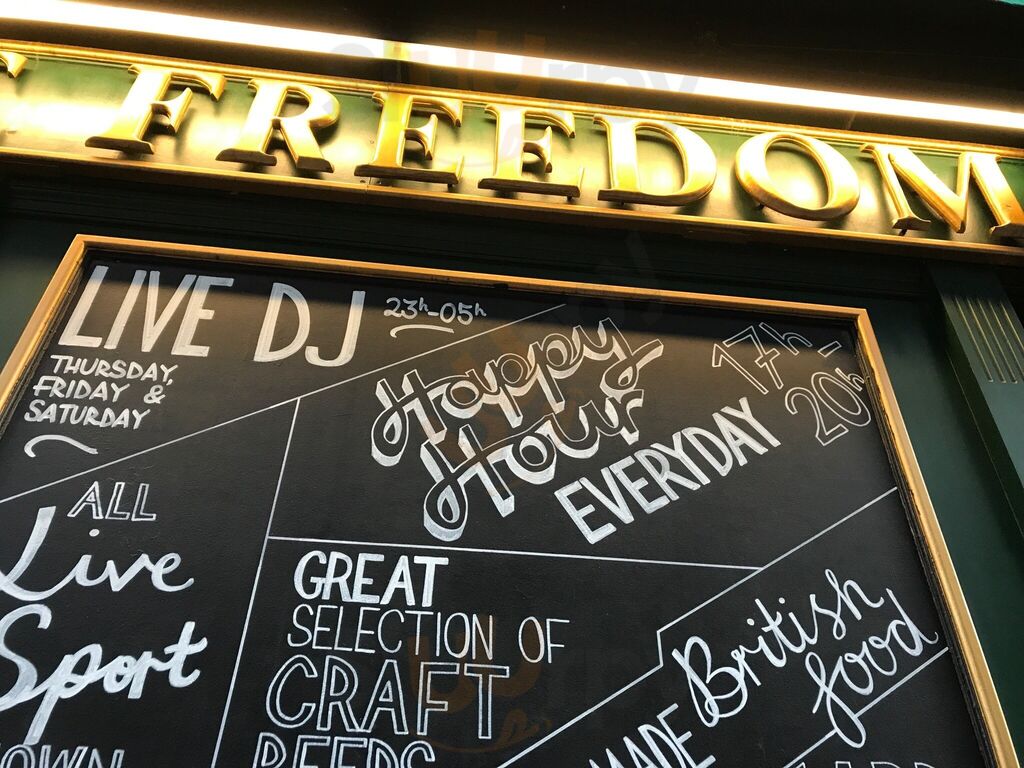 FREEDOM
LIVE DJ 23h-05h
THURSDAY,
FRIDAY &
SATURDAY
Happy
Hour
EVERYDAY
17h-
20h
ALL
Live
Sport
GREAT
SELECTION OF
CRAFT
BEERS
British
food